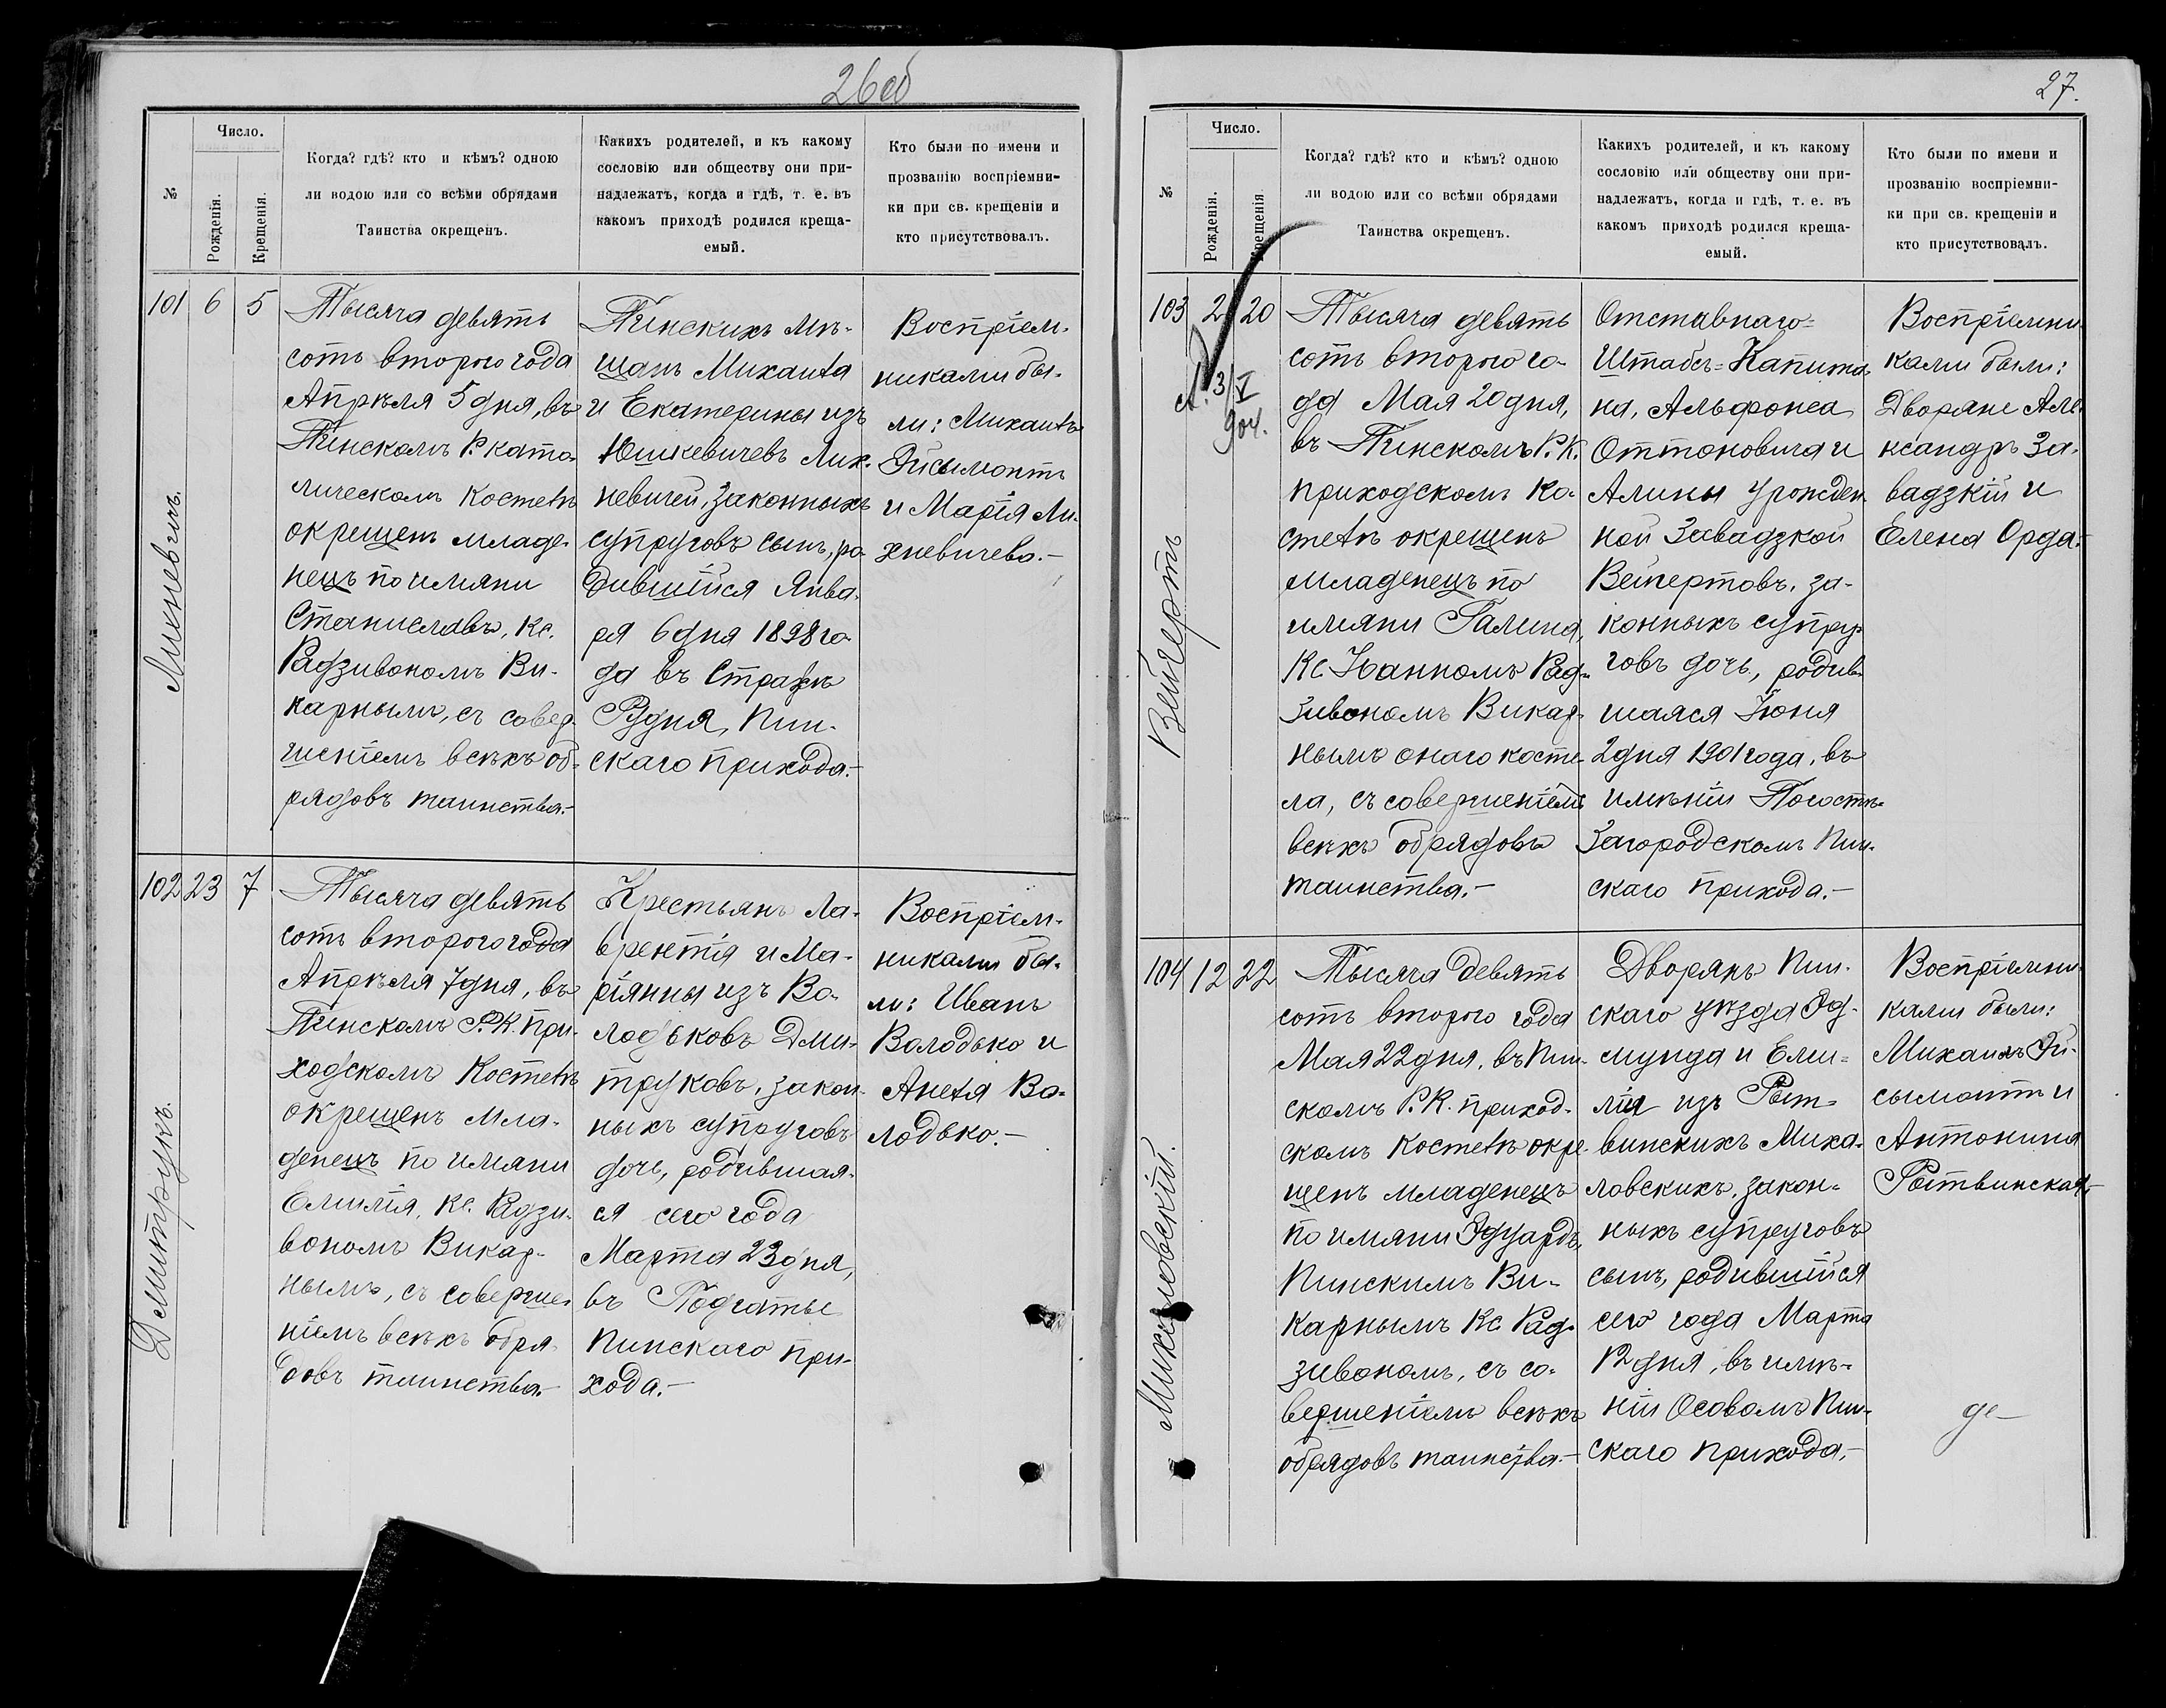 26 об
№
Число.
Рожденія.
Крещенія.
Когда? гдѣ? кто и кѣмъ? одною
ли водою или со всѣми обрядами
Таинства окрещенъ.
Какихъ родителей, и къ какому
сословію или обществу они при-
надлежатъ, когда и гдѣ, т. е. въ
какомъ приходѣ родился креща-
емый.
Кто были по имени и
прозванію воспріемни-
ки при св. крещеніи и
кто присутствовалъ.
101
6
5
Тысяча девять
сотъ второго года
Апрѣля 5 дня, въ
Пинскомъ Р. като-
лическомъ Костелѣ
окрещенъ младе-
нецъ по имяни
Станиславъ, Кс.
Радзивономъ Ви-
карнымъ, съ совер-
шеніемъ всѣхъ об-
рядовъ таинства.-
Пинскихъ мѣ-
щанъ Михаила
и Екатерины изъ
Юшкевичевъ Лих-
невичей, законныхъ
супруговъ сынъ, ро-
дившійся Янва-
ря 6 дня 1898 го-
да въ
Рудня, Пин-
скаго прихода.-
Воспріем-
никами бы-
ли: Михаилъ
Эйсымонтъ
и Марія Ли-
хневичево.-
102
23
7
Дмитрукъ.
Тысяча девять
сотъ второго года
Апрѣля 7 дня, въ
Пинскомъ Р.К. при-
ходскомъ Костелѣ
окрещенъ мла-
денецъ по имяни
Емилія, Кс. Радзи-
вономъ Викар-
нымъ, съ соверше-
ніемъ всѣхъ обря-
довъ таинства.-
Крестьянъ Ла-
врентія и Ма-
ріянны изъ Во-
лодьковъ Дми-
труковъ, закон-
ныхъ супруговъ
дочь, родившая-
ся сего года
Марта 23 дня,
въ
Пинскаго при-
хода.-
Воспріем-
никами бы-
ли: Иванъ
Володько и
Анеля Во-
лодько.-
27.
№
Число.
Рожденія.
Крещенія
Когда? гдѣ? кто и кѣмъ? одною
ли водою или со всѣми обрядами
Таинства окрещенъ.
Какихъ родителей, и къ какому
сословію или обществу они при-
надлежатъ, когда и гдѣ, т. е. въ
какомъ приходѣ родился креща-
емый.
Кто были по имени и
прозванію воспріемни-
ки при св. крещеніи и
кто присутствовалъ.
103
2
20
3/V
904.
Вейгертъ
Тысяча девять
сотъ второго го-
да Мая 20 дня,
въ Пинскомъ Р.К.
приходскомъ Ко-
стелѣ окрещенъ
младенецъ по
имяни Галина,
Кс Іоанномъ Рад-
зивономъ Викар-
нымъ онаго косте-
ла, съ совершеніемъ
всѣхъ обрядовъ
таинства.-
Отставнаго=
Штабсъ=Капита-
на, Альфонса
Оттоновича и
Алины урожден-
ной Завадзкой
Вейгертовъ, за-
конныхъ супру-
говъ дочь, родив-
шаяся Іюня
2 дня 1901 года, въ
имѣніи Погостѣ-
Загородскомъ Пин-
скаго прихода.-
Воспріемни-
ками были:
Дворяне Але-
ксандръ За-
вадзкій и
Елена Орда.-
104
12
22
Тысяча девять
сотъ второго года
Мая 22 дня, въ Пин-
скомъ Р.К. приход-
скомъ Костелѣ окре-
щенъ младенецъ
по имяни Эдуардъ,
Пинскимъ Ви-
карнымъ Кс Рад-
зивономъ, съ со-
вершеніемъ всѣхъ
обрядовъ таинства.-
Дворянъ Пин-
скаго уѣзда Эд-
мунда и Еми-
ліи изъ Рот-
винскихъ Миха-
ловскихъ, закон-
ныхъ супруговъ
сынъ, родившійся
сего года Марта
12 дня, въ имѣ-
ніи Осовомъ Пин-
скаго прихода.-
Воспріемни-
ками были:
Михаилъ Эй-
сымонтъ и
Антонина
Ротвинская.-